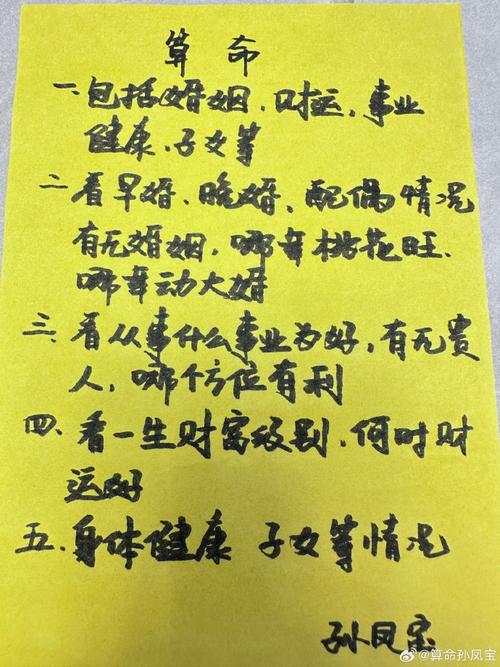 算命
一、包括婚姻、财运、事业
健康、子女等
二、看早婚、晚婚、配偶情况
有无婚姻，哪年桃花旺、
哪年动大婚
三、看从事什么事业为好，有无贵
人，哪个方位有利
四、看一生财富级别，何时财
运好
五、身体健康 子女等情况
孙凤宝
@算命孙凤宝